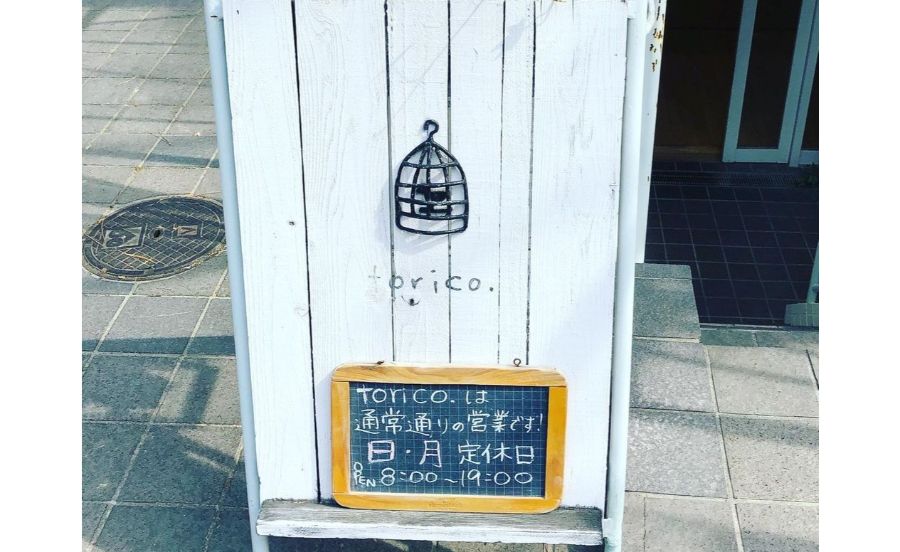 torico.
torico. は
通常通りの営業です!
日・月 定休日
OPEN 8:00~19:00